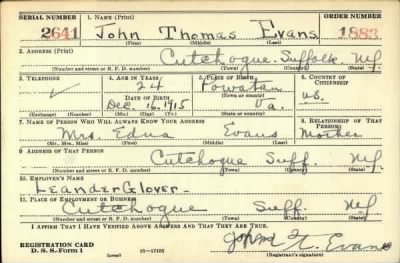 SERIAL NUMBER 1. NAME (Print) ORDER NUMBER
2641 John Thomas Evans 1883
(First) (Middle) (Last)
2. ADDRESS (Print)
Cutchogue Suffolk NY
(Number and street or R. F. D. number) (Town) (County) (State)
3. TELEPHONE 4. AGE IN YEARS 5. PLACE OF BIRTH 6. COUNTRY OF CITIZENSHIP
✓ 24 Powatan U.S.
DATE OF BIRTH (Town or county)
Dec. 16, 1915 Va.
(Exchange) (Number) (Mo.) (Day) (Yr.) (State or country)
7. NAME OF PERSON WHO WILL ALWAYS KNOW YOUR ADDRESS 8. RELATIONSHIP OF THAT PERSON
Mrs. Edna Evans Mother
(Mr., Mrs., Miss) (First) (Middle) (Last)
9. ADDRESS OF THAT PERSON
Cutchogue Suff. NY
(Number and street or R. F. D. number) (Town) (County) (State)
10. EMPLOYER'S NAME
Leander Glover
11. PLACE OF EMPLOYMENT OR BUSINESS
Cutchogue Suff. NY
(Number and street or R. F. D. number) (Town) (County) (State)
I AFFIRM THAT I HAVE VERIFIED ABOVE ANSWERS AND THAT THEY ARE TRUE.
REGISTRATION CARD
D. S. S. Form 1 (over) 16—17105 Evans
(Registrant's signature)